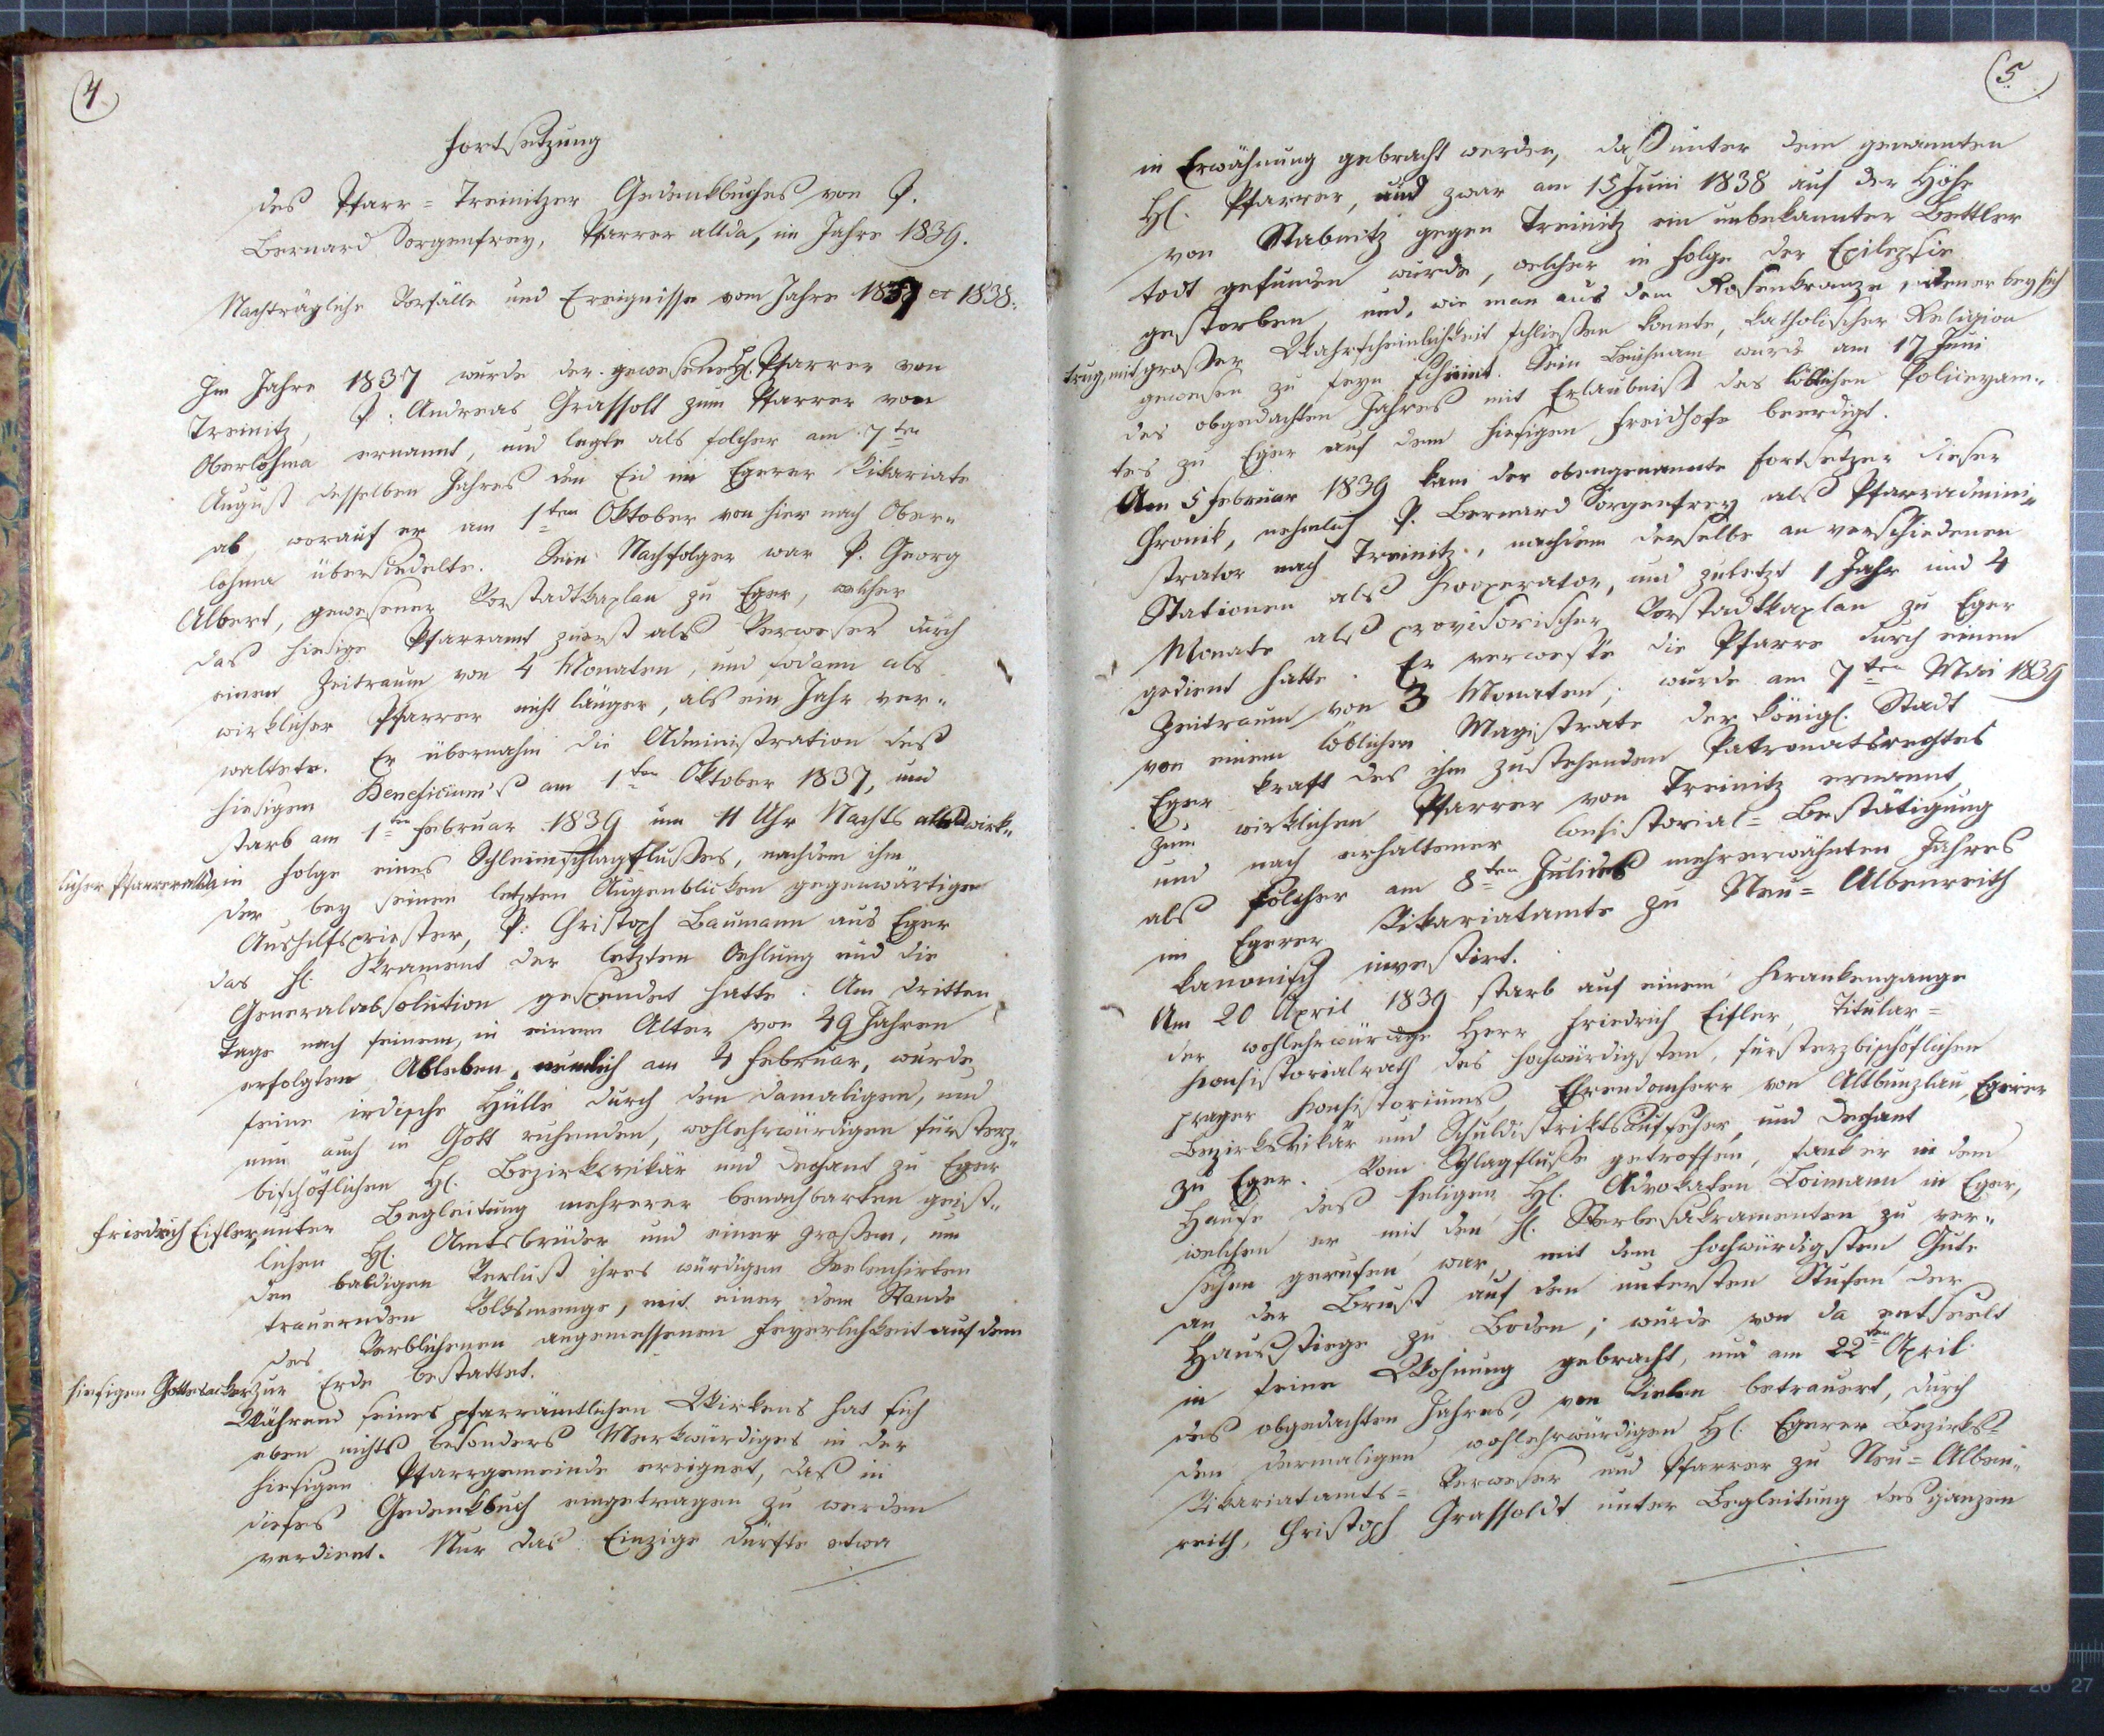 4.
Fortsetzung
des Pfarr=Treinitzer Gedenkbuches von P.
Bernard Sorgenfrey, Pfarrer allda, im Jahre 1839.
Nachträgliche Vorfälle und Ereignisse vom Jahre 1837 et 1838.
Im Jahre 1837 wurde der gewesene H. Pfarrer von
Treinitz, P. Andreas Grassolt zum Pfarrer von
Oberlohma ernannt, und legte als solcher am 7ten
August desselben Jahres den Eid im Egerer Vikariate
ab, worauf er am 1ten Oktober von hier nach Ober=
lohma übersiedelte. Sein Nachfolger war P. Georg
Albert, gewesener Vorstadtkaplan zu Eger, welcher
das hiesige Pfarramt zuerst als Verweser durch
einen Zeitraum von 4 Monaten, und sodann als
wirklicher Pfarrer nicht länger, als ein Jahr ver=
waltete. Er übernahm die Administration des
hiesigen Beneficium's am 1ten Oktober 1837, und
starb am 1ten Februar 1839 um 11 Uhr Nachts als wirk=
licher Pfarrer allda in Folge eines Schleimschlagflußes, nachdem ihm
der bey seinen letzten Augenblicken gegenwärtige
Aushilfspriester, P. Christoph Baumann aus Eger
das hl. Skrament der letzten Oehlung und die
Generalabsolution gespendet hatte. Am dritten
Tage nach seinem, in einem Alter von 49 Jahren
erfolgten Ableben, nemlich am 4 Februar, wurde
seine irdische Hülle durch den damaligen, und
nun auch in Gott ruhenden, wohlehrwürdigen fürsterz=
bischöflichen H. Bezirksvikär und Dechant zu Eger
Friedrich Eisler, unter Begleitung mehrerer benachbarten geist=
lichen H. Amtsbrüder und einer großen, um
den baldigen Verlust ihres würdigen Seelenhirten
trauernden Volksmenge, mit einer dem Stande
des Verblichenen angemessenen Feyerlichkeit auf dem
hiesigen Gottesacker zur Erde bestattet.
Während seines pfarrämtlichen Wirkens hat sich
eben nichts besonders Merkwürdiges in der
hiesigen Pfarrgemeinde ereignet, das in
dieses Gedenkbuch eingetragen zu werden
verdient. Nur das Einzige dürfte etwa
5.
in Erwähnung gebracht werden, daß unter dem genannten
H. Pfarrer, und zwar am 15 Juni 1838 auf der Höhe
von Stabnitz gegen Treinitz ein unbekannter Bettler
todt gefunden wurde, welcher in Folge der Epilepsie
gestorben und, wie man aus dem Rosenkranze, den er bey sich
trug, mit großer Wahrscheinlichkeit schließen konnte, katholischer Religion
gewesen zu seyn scheint. Sein Leichnam wurde am 17 Juni
des obgedachten Jahres mit Erlaubniß des löblichen Policeyam=
tes zu Eger auf dem hiesigen Freidhofe beerdigt.
Am 5 Februar 1839 kam der obengenannte Fortsetzer dieser
Chronik, nehmlich P. Bernard Sorgenfrey als Pfarradmini=
strator nach Treinitz, nachdem derselbe an verschiedenen
Stationen als Kooperator, und zuletzt 1 Jahr und 4
Monate als provisorischer Vorstadtkaplan zu Eger
gedient hatte. Er verweste die Pfarre durch einen
Zeitraum von 3 Monaten; wurde am 7ten Mai 1839
von einem löblichen Magistrate der königl. Stadt
Eger kraft des ihm zustehenden Patronatsrechtes
zum wirklichen Pfarrer von Treinitz ernannt,
und nach erhaltener Consistorial=Bestätigung
als solcher am 8ten Juli des mehrerwähnten Jahres
im Egerer Vikariatamte zu Neu=Albenreith
kanonisch investirt.
Am 20 April 1839 starb auf einem Krankengange
der wohlehrwürdige Herr Friedrich Eisler, Titular=
Konsistorialrath des hochwürdigsten, fürsterzbischöflichen
prager Konsistoriums, Ehrendomherr von Altbunzlau, Egerer
Bezirksvikär und Schuldistriktsaufseher, und Dechant
zu Eger. Vom Schlagfluße getroffen, sank er in dem
Hause des seligen H. Advokaten Loimann in Eger,
welchen er mit den hl. Sterbesakramenten zu ver=
sehen gerufen war, mit dem hochwürdigsten Gute
an der Brust auf den untersten Stufen der
Hausstiege zu Boden; wurde von da entseelt
in seine Wohnung gebracht, und am 22ten April
des obgedachten Jahres, von Vielen betrauert, durch
den dermaligen wohlehrwürdigen H. Egerer Bezirks=
Vikariatamts=Verweser und Pfarrer zu Neu=Alben=
reith, Christoph Grassoldt unter Begleitung des ganzen
24 25 26 27